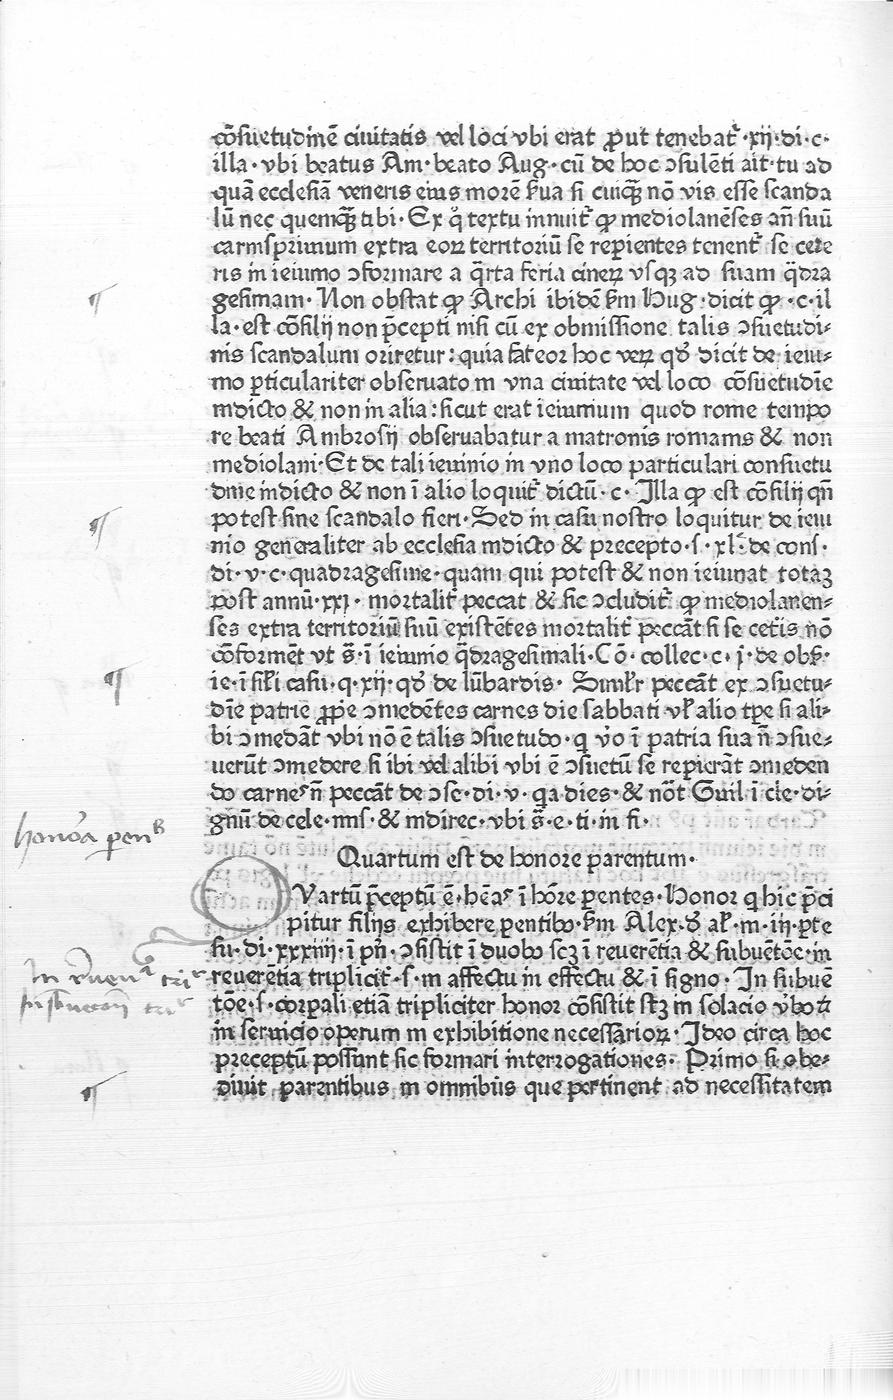 cōsuetudinē ciuitatis vel loci vbi erat ꝓut tenebat᷑ ·xij·di·c·
illa·vbi beatus Am·beato Aug·cū de hoc ↄsulēti ait·tu ad
quā ecclesiā veneris eius morē ẜua si cuiqꝫ̄ nō vis esse scanda
lū nec quemqꝫ̄ tibi·Ex q̊ textu innuit᷑ ꝙ mediolanēses an̄ suū
carnispriuium extra eoꝝ territoriū se reꝑientes tenent᷑ se cete
ris in ieiunio ↄformare a q̄rta feria cineꝝ vsqꝫ ad suam q̈dra
gesimam·Non obstat ꝙ Archi ibidē ẜm Hug·dicit ꝙ·c·il
la·est cōsilij non p̄cepti nisi cū ex obmissione talis ↄsuetudi⸗
nis scandalum oriretur:quia fateor hoc veꝝ qd̓ dicit de ieiu⸗
nio ꝑticulariter obseruato in vna ciuitate vel loco cōsuetudīe
indicto & non in alia:sicut erat ieiunium quod rome tempo
re beati Ambrosij obseruabatur a matronis romanis & non
mediolani·Et de tali ieiunio in vno loco particulari consuetu
dine indicto & non ī alio loquit᷑ dictū·c·Illa ꝙ est cōsilij qn̄
potest sine scandalo fieri·Sed in casu nostro loquitur de ieiu
nio generaliter ab ecclesia indicto & precepto·s·xl·̄ de cons·
di·v·c·quadragesime·quam qui potest & non ieiunat totaꝫ
post annū·xxj· mortalit᷑ peccat & sic ↄcludit᷑ ꝙ mediolanen⸗
ses extra territoriū suū existētes mortalit᷑ peccāt si se cet̓is nō
cōformēt vt s̄·ī ieiunio q̄dragesimali·Cō·collec·c·j·de obẜ·
ie·ī sil̓i casu·q·xij·qd̓ de lūbardis· Simil̓r peccāt ex ↄsuetu⸗
dīe patrie ꝓpe ↄmedētes carnes die sabbati vl̓ alio tꝑe si ali⸗
bi ↄmedāt vbi nō ē talis ↄsuetudo·q v̊o ī patria sua n̄ ↄsue⸗
uerūt ↄmedere si ibi vel alibi vbi ē ↄsuetū se reꝑierāt ↄmeden
do carnes n̄ peccāt de ↄse·di·v·q̱a dies·& nōt Guil·ī cle·di⸗
gnū de cele·mis·& indirec·vbi s̄·e·ti·in fi·
Quartum est de honore parentum·
QVartū p̄ceptū ē·hēas̓ ī hōre ꝑentes·Honor q hic p̄ci
pitur filijs exhibere ꝑentibꝰ·ẜm Alex·d̓ al̓·in·iij·ꝑte
su·di·xxxiiij·ī pn̄·ↄsistit ī duobꝰ scꝫ ī reuerētia & subuētōe·in
reuerētia triplicit᷑·s·in affectu in effectu & ī signo·In subuē
tōe·s·corꝑali etiā tripliciter honor cōsistit sꝫ in solacio v̓boꝝ
in seruicio operum in exhibitione necessarioꝝ·Ideo circa hoc
preceptū possunt sic formari interrogationes· Primo si obe⸗
diuit parentibus in omnibus que pertinent ad necessitatem